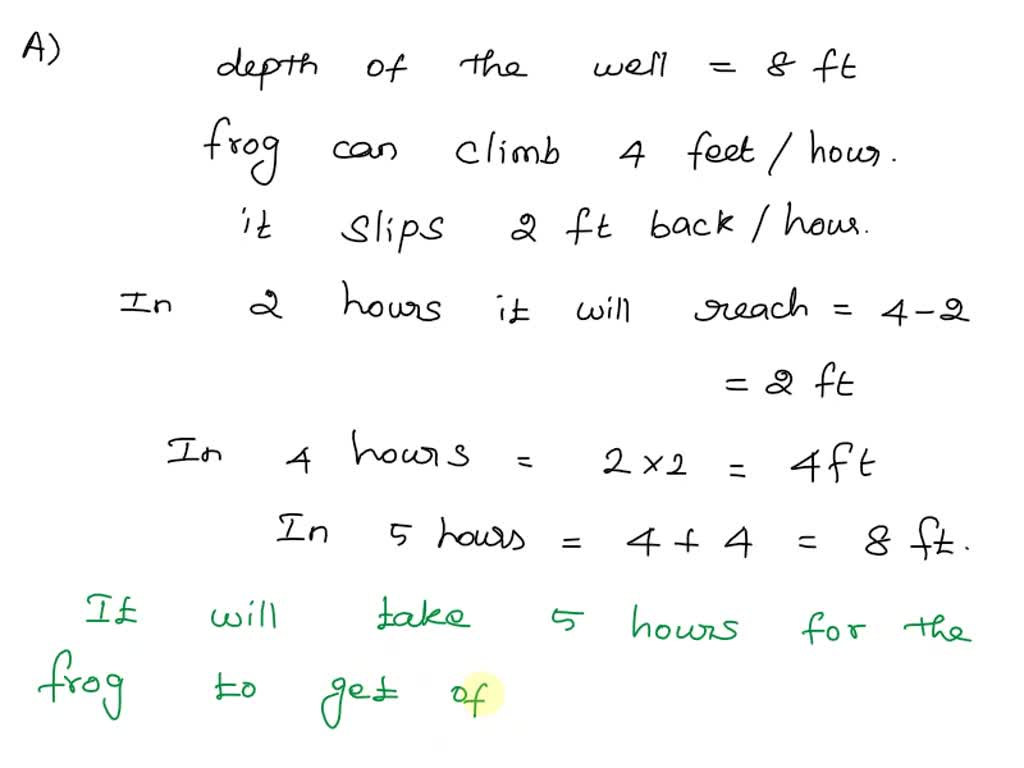 A)
depth of the well = 8 ft
frog can climb 4 feet / hour.
it slips 2 ft back / hour.
In 2 hours it will reach = 4 - 2
= 2 ft
In 4 hours = 2 × 2 = 4 ft
In 5 hours = 4 + 4 = 8 ft.
It will take 5 hours for the
frog to get of